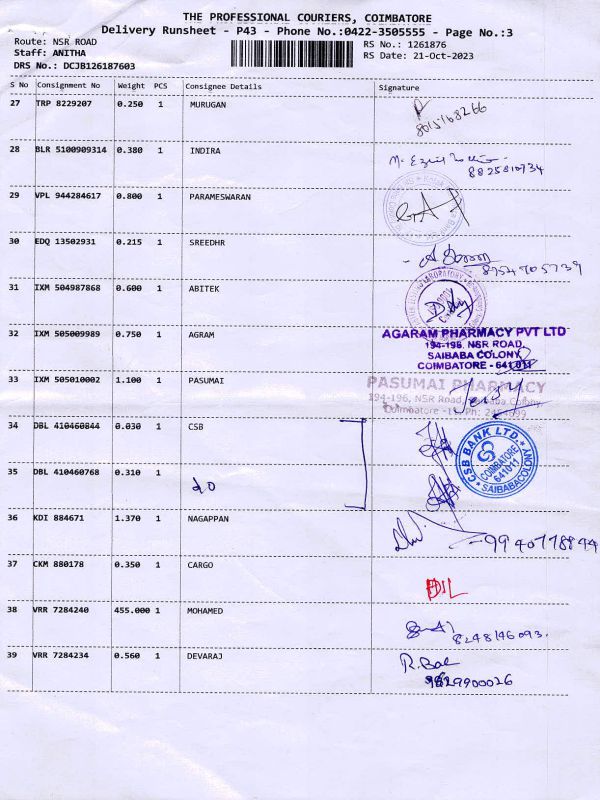 THE PROFESSIONAL COURIERS, COIMBATORE
Delivery Runsheet - P43 - Phone No.:0422-3505555 - Page No.:3
Route: NSR ROAD
Staff: ANITHA
DRS No.: DCJB126187603
RS No.: 1261876
RS Date: 21-Oct-2023
S No Consignment No Weight PCS Consignee Details Signature
27 TRP 8229207 0.250 1 MURUGAN
28 BLR 5100909314 0.380 1 INDIRA
8825810734
29 VPL 944284617 0.800 1 PARAMESWARAN
30 EDQ 13502931 0.215 1 SREEDHR
8754905739
31 IXM 504987868 0.600 1 ABITEK
32 IXM 505009989 0.750 1 AGRAM
AGARAM PHARMACY PVT LTD
194-196, NSR ROAD,
SAIBABA COLONY
COIMBATORE - 641 011
33 IXM 505010002 1.100 1 PASUMAI
PASUMAI PHARMACY
194-196, NSR Road, Saibaba Colony,
Coimbatore -11. Ph:
34 DBL 410460844 0.030 1 CSB
CSB BANK LTD.
COIMBATORE
641011
SAIBABACOLONY
35 DBL 410460768 0.310 1
do
36 KDI 884671 1.370 1 NAGAPPAN
9940778844
37 CKM 880178 0.350 1 CARGO
38 VRR 7284240 455.000 1 MOHAMED
8248146093.
39 VRR 7284234 0.560 1 DEVARAJ
R. Bal